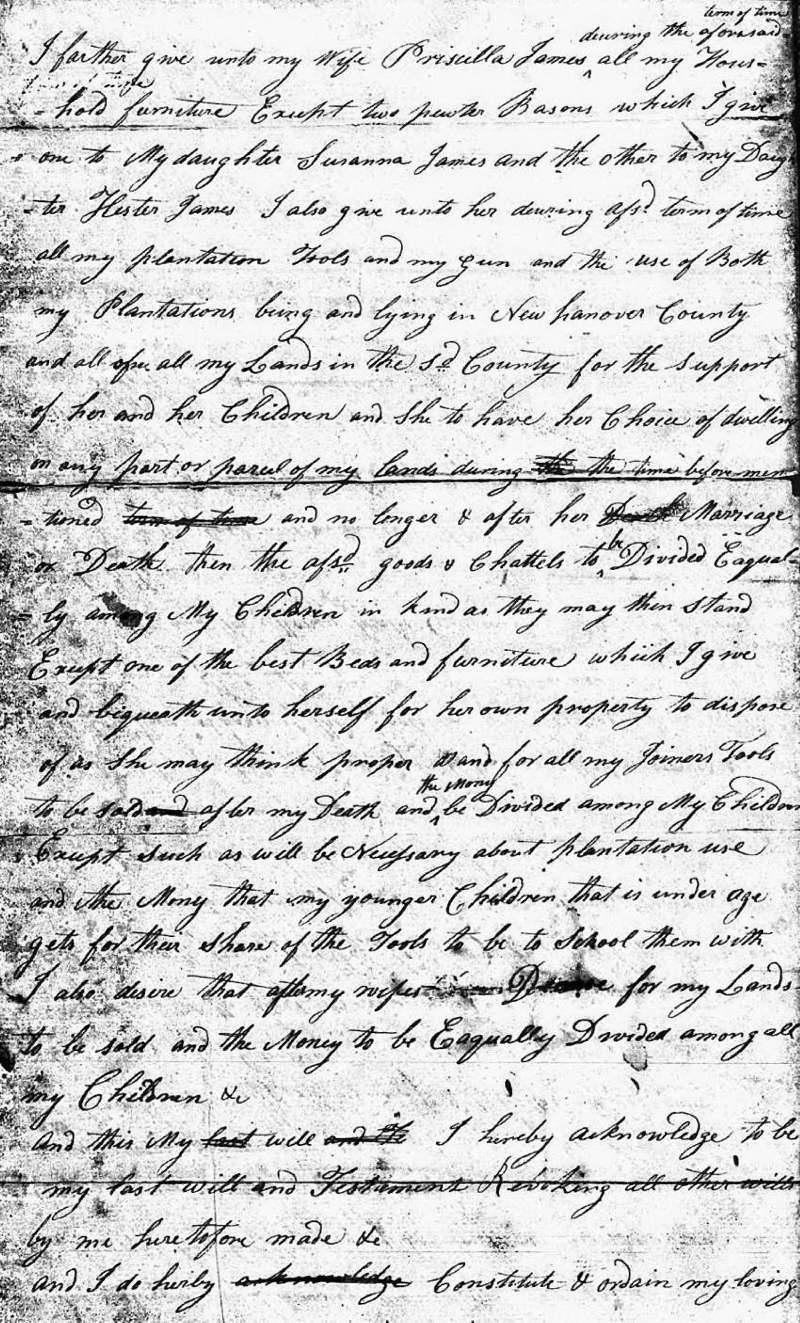 term of time
deuring the aforasaid
I farther give unto my Wife Priscilla James ^ all my Hous-
-hold furniture Except two pewter Basons which I give
one to My daughter Susanna James and the other to my Daugh
-ter Hester James I also give unto her deuring afsd. term of time
all my plantation Tools and my Gun and the use of Both
my Plantations being and lying in New hanover County
and all my Lands in the sd County for the Support
of her and her Children and She to have her Choice of dwelling
on any part or parcel of my lands during the the time before men
-tioned term of time and no longer & after her Death Marriage
or Death then the afsd. goods & Chattels to ^be Divided Eaqual-
-ly among My Children in kind as they may then Stand
Except one of the best Beds and furniture which I give
and biqueath unto herself for her own property to dispose
of as She may think proper and for all my Joiners Tools
the Mony
to be sold and after my Death and ^ be Divided among My Children
Except such as will be Necessary about plantation use
and the Mony that my younger Children that is under age
gets for their Share of the Tools to be to School them with
I also desire that after my wifes for my Lands
to be sold and the Money to be Eaqually Divided among all
my Children &c
And this My last will and the I hereby acknowledge to be
my last will and Testament Revoking all other wills
by me heretofore made &c
and I do herby acknowledge Constitute & ordain my loving